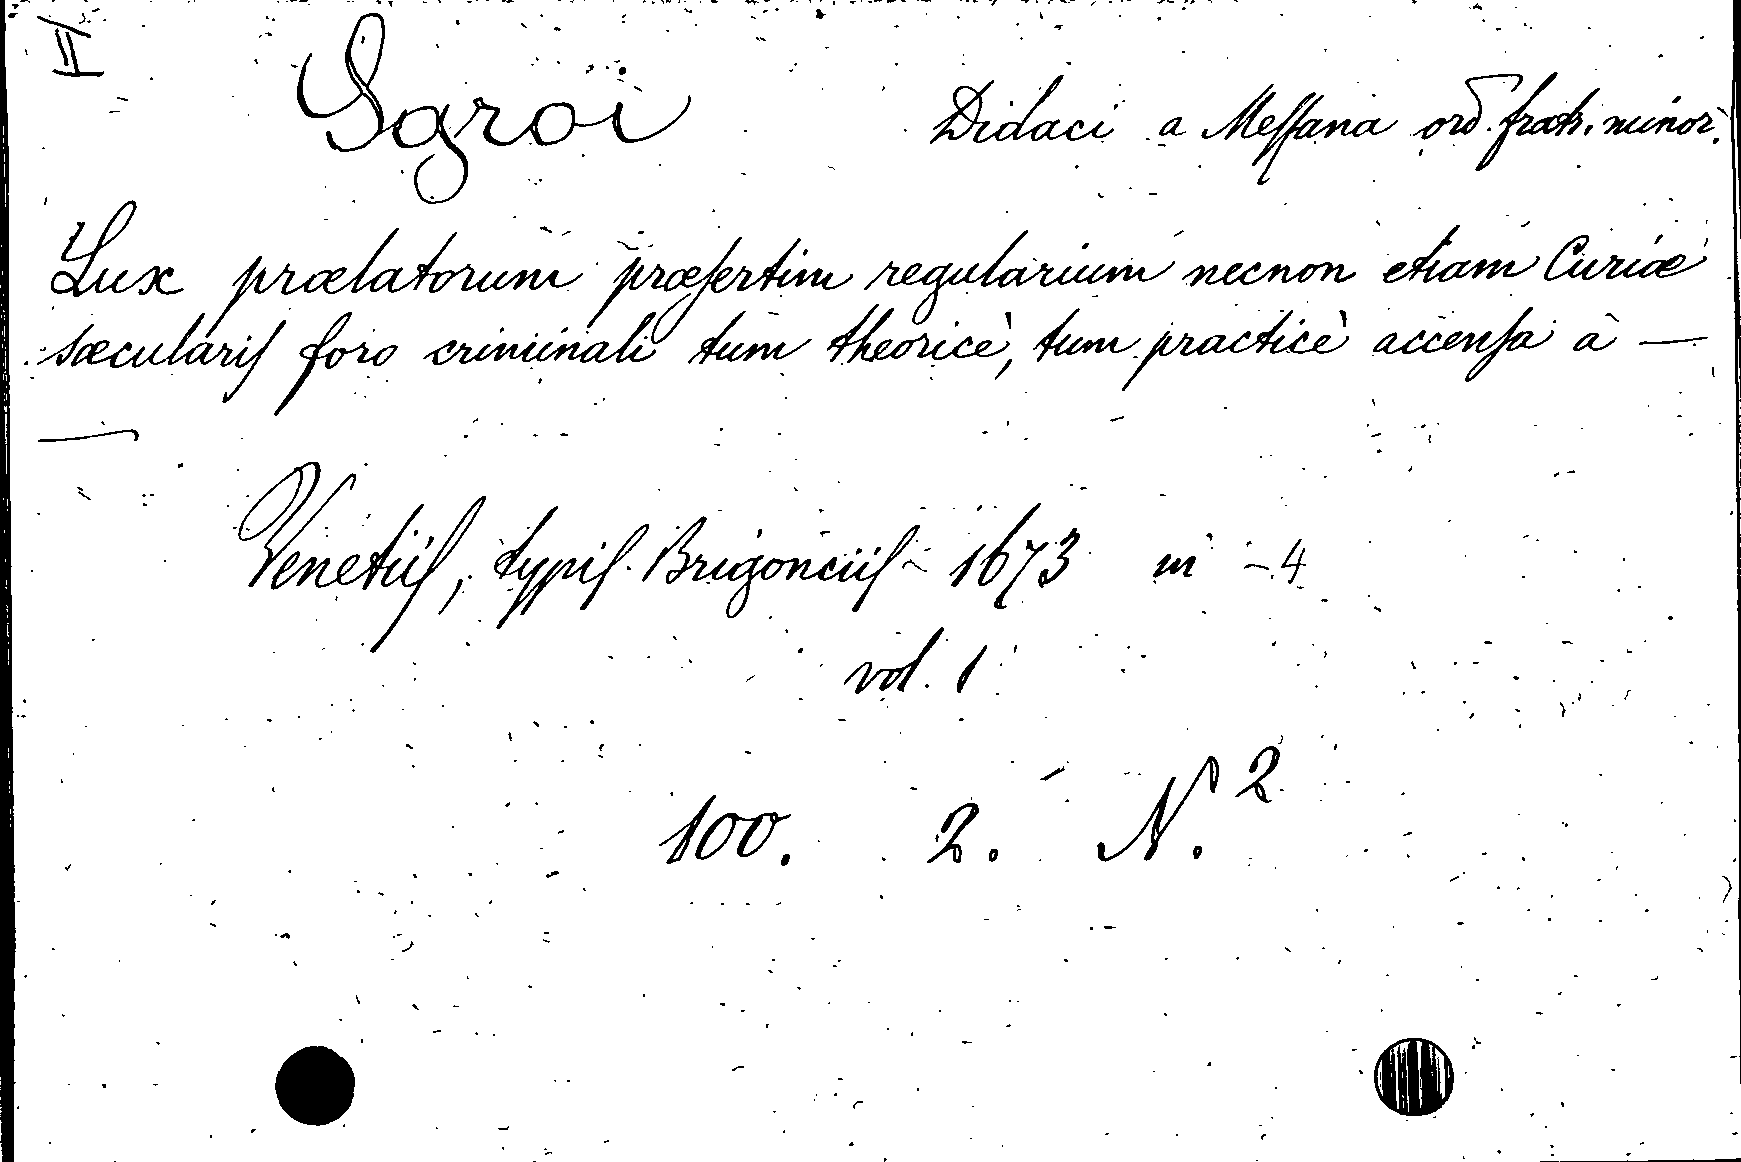 Sgroi Didaci a Messana ord. fratr. minor.
Lux prælatorum præsertim regularium necnon etiam Curiæ
sæcularis foro criminali tum theoricè, tum practicè accensa à —
—
Venetiis, typis Brigonciis - 1673 in - 4
vol. 1
100. 2. N. 2